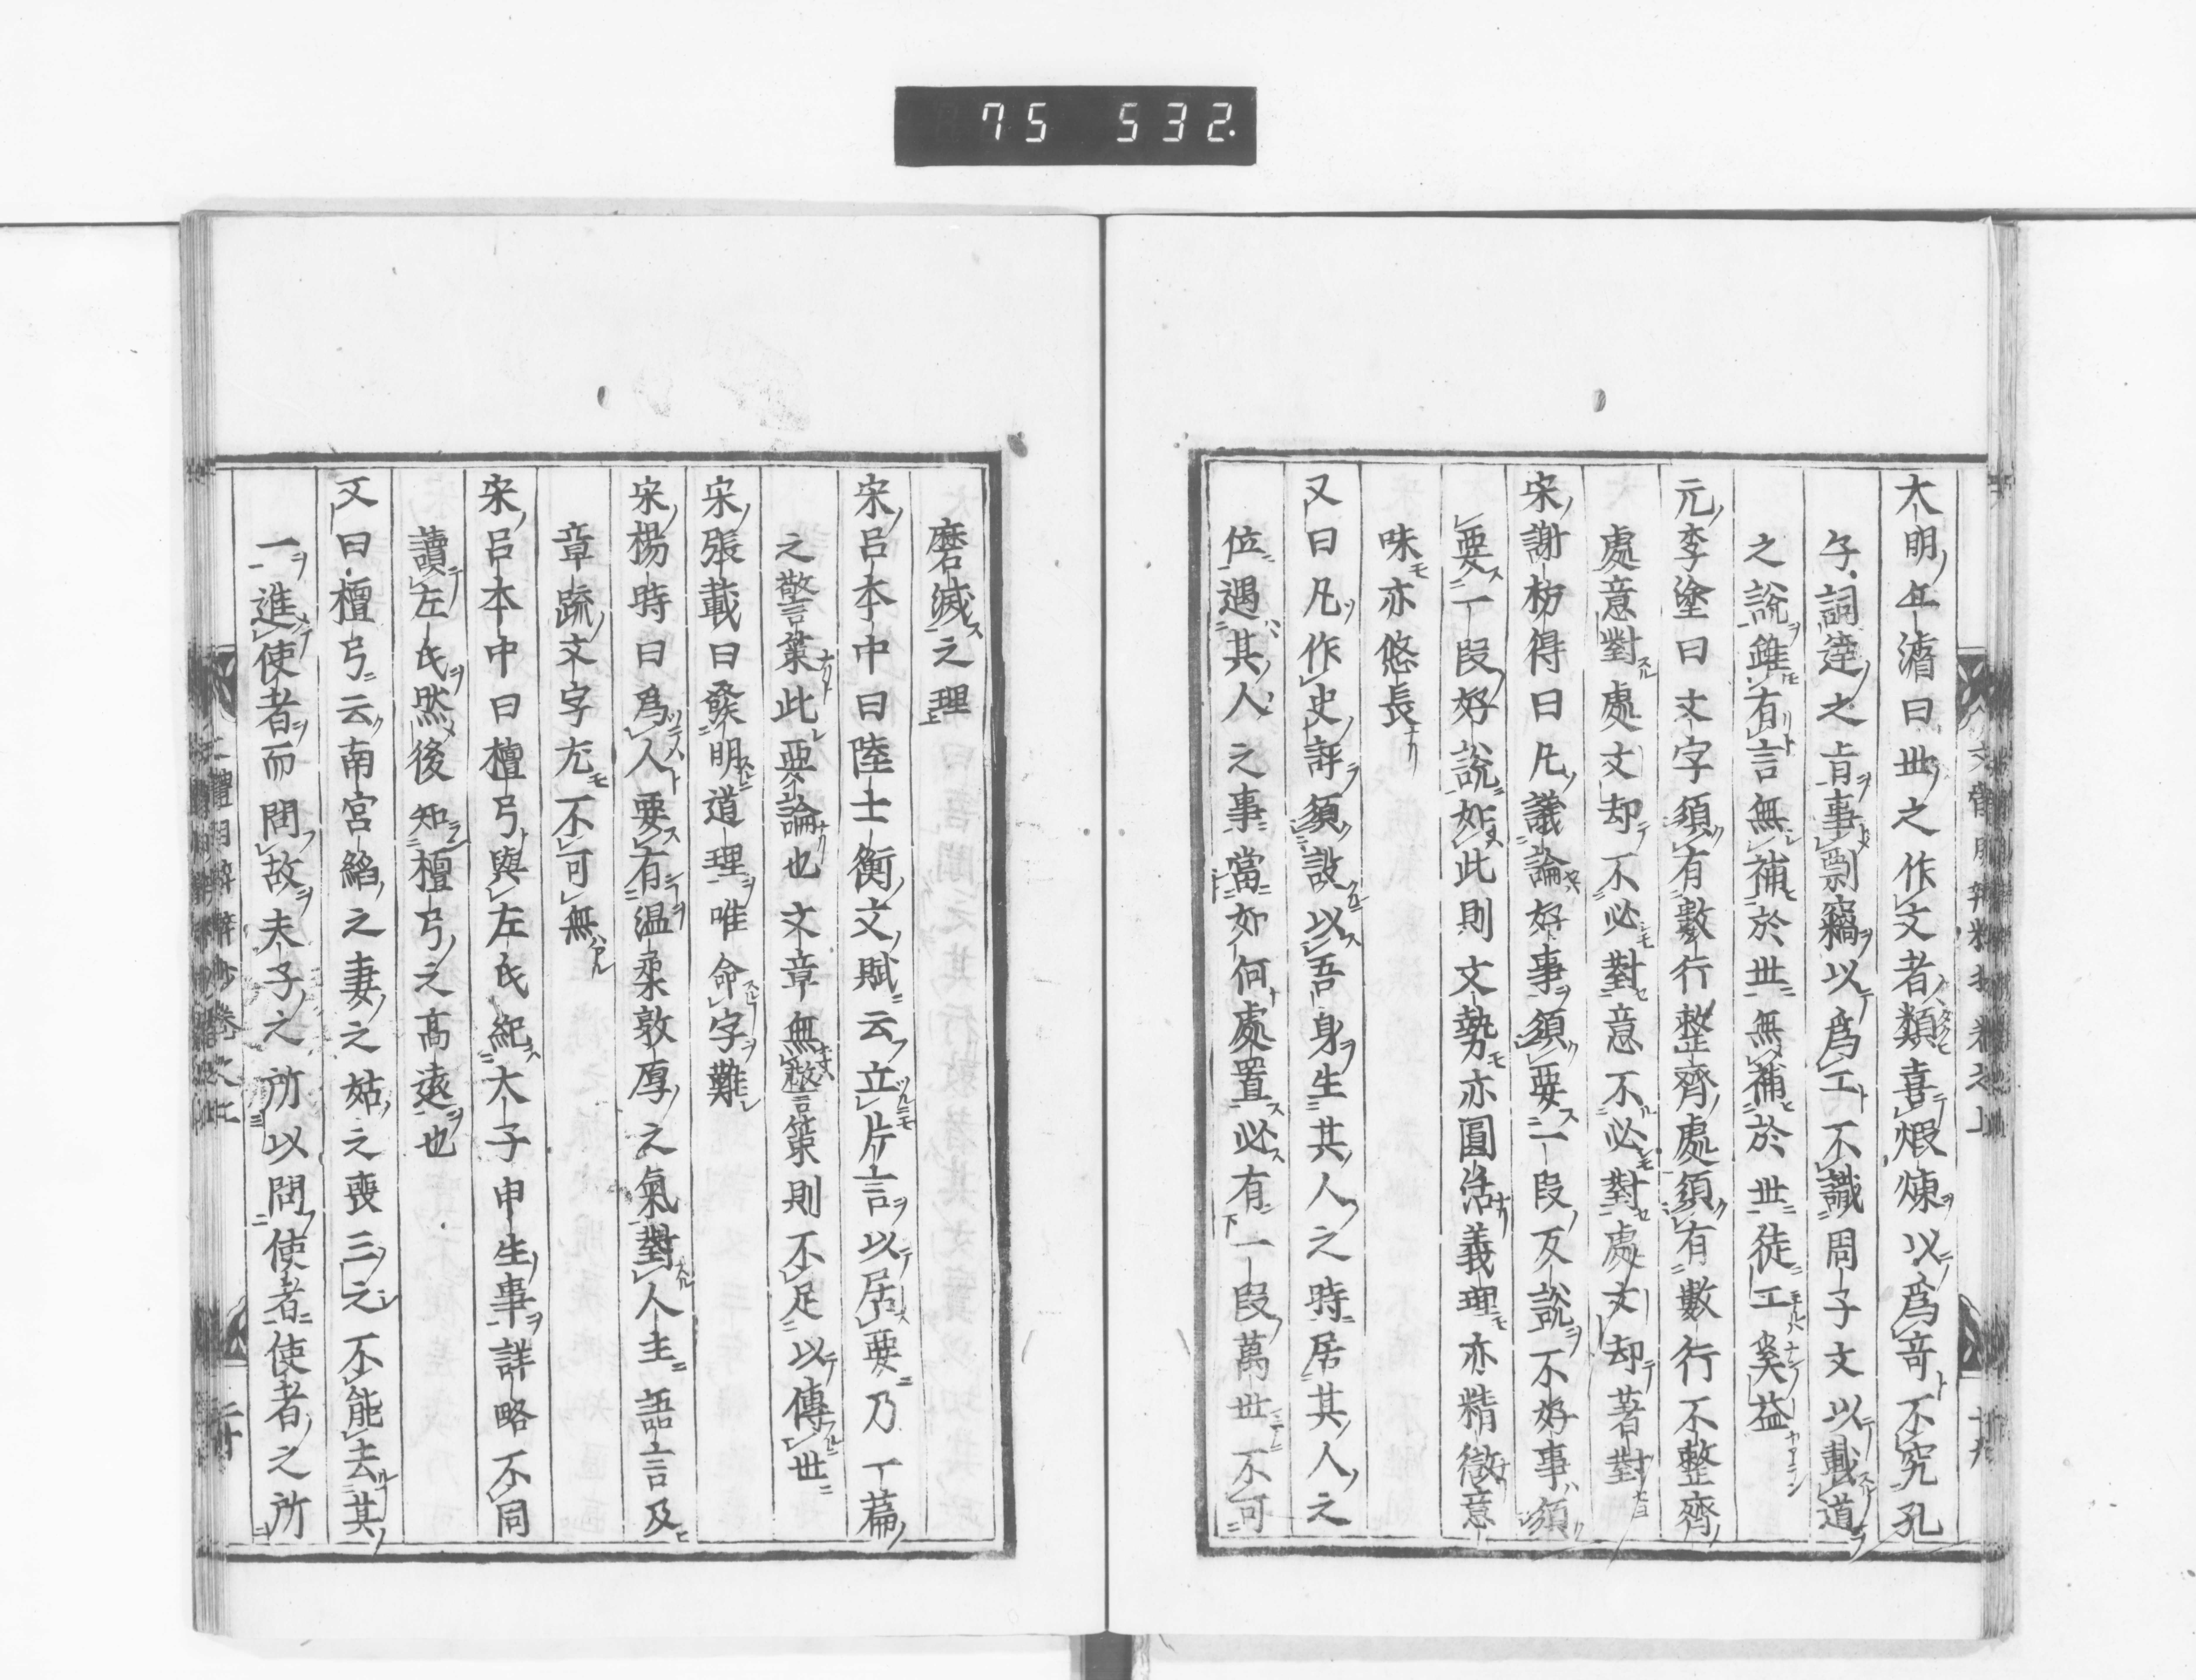 75 532.
大明丘濬曰世之作文者類喜煆煉以爲竒不究孔
子詞達之㫖事剽竊以爲工不識周子文以載道
之說雖有言無補於世無補於世徒工奚益
元李塗曰文字須有數行整齊處須有數行不整齊
處意對處文却不必對意不必對處文却著對
宋謝枋得曰凡議論好事須要一段反說不好事須
要一段好說如此則文勢亦圓活義理亦精微意
味亦悠長
又曰凡作史評須設以吾身生其人之時居其人之
位遇其人之事當如何處置必有一段萬世不可
磨滅之理
宋呂本中曰陸士衡文賦云立片言以居要乃一篇
之警策此要論也文章無警策則不足以傳世
宋張載曰發明道理唯命字難
宋楊時曰爲人要有温柔敦厚之氣對人主語言及
章疏文字尤不可無
宋呂本中曰檀弓與左氏紀太子申生事詳略不同
讀左氏然後知檀弓之高遠也
又曰檀弓云南宮縚之妻之姑之喪三之不能去其
一進使者而問故夫子之所以問使者使者之所